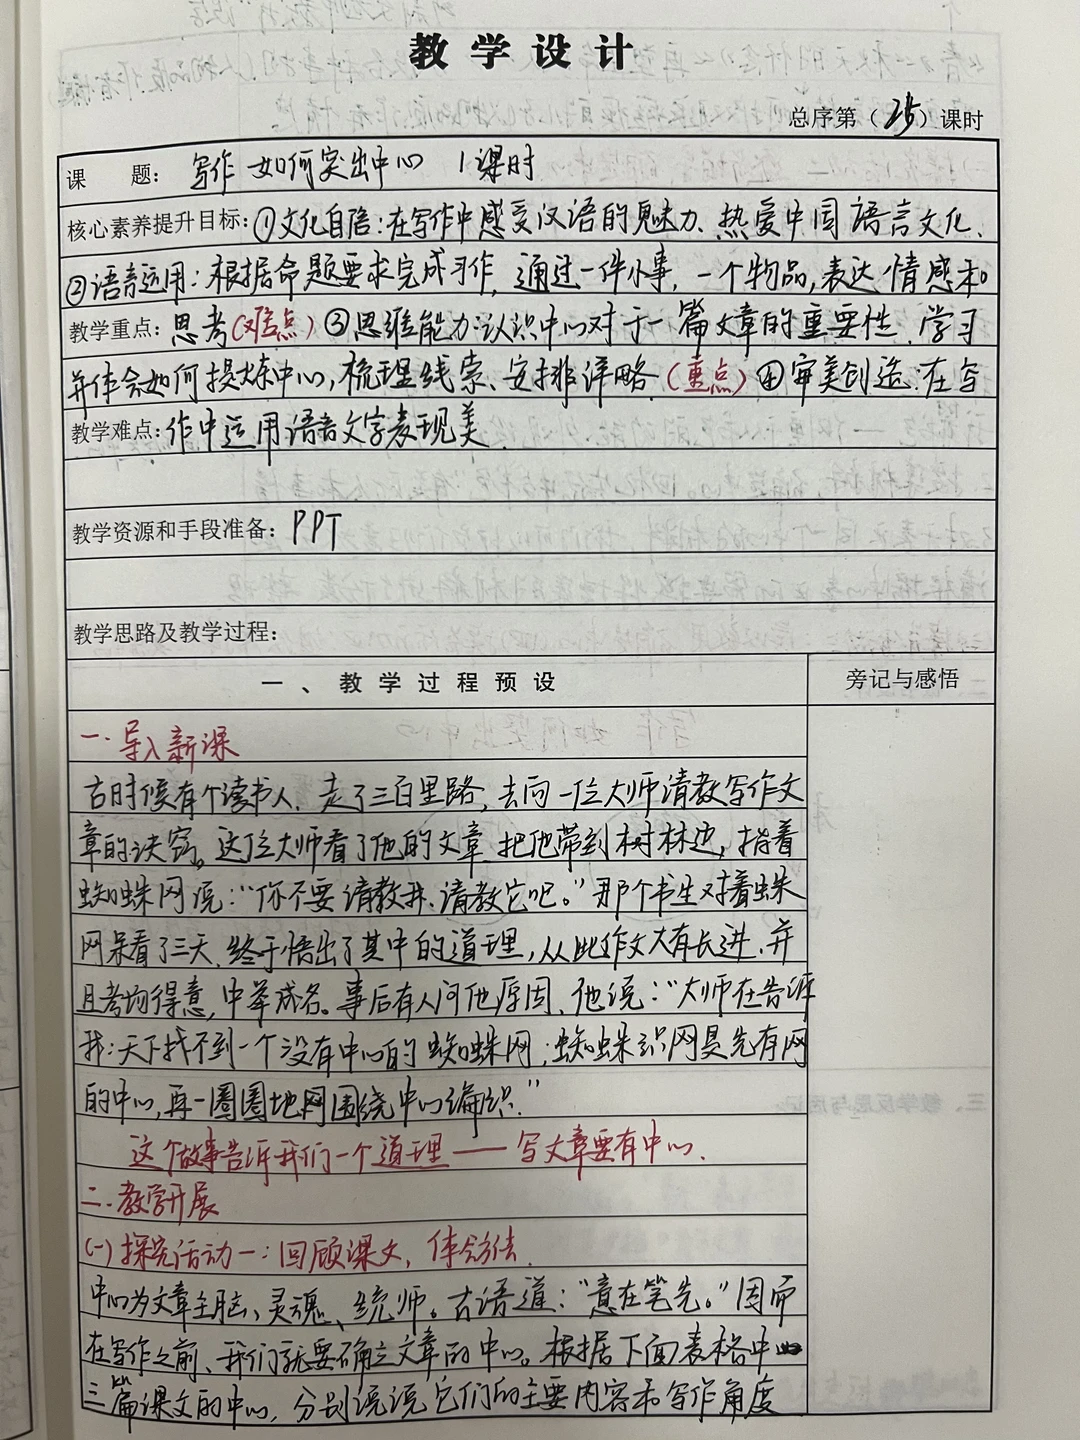 教学设计
总序第（25）课时
课 题： 写作 如何突出中心 1课时
核心素养提升目标：①文化自信：在写作中感受汉语的魅力、热爱中国语言文化、
②语言运用：根据命题要求完成习作，通过一件小事，一个物品，表达情感和
教学重点：思考（难点）③思维能力：认识中心对于一篇文章的重要性，学习
并体会如何提炼中心，梳理线索、安排详略（重点）④审美创造：在写
教学难点：作中运用语言文字表现美
教学资源和手段准备：PPT
教学思路及教学过程：
一、教学过程预设 旁记与感悟
一.导入新课
古时候有个读书人，走了三百里路，去向一位大师请教写作文
章的诀窍。这位大师看了他的文章，把他带到树林边，指着
蜘蛛网说：“你不要请教我，请教它吧。”那个书生对着蛛
网呆看了三天，终于悟出了其中的道理，从此作文大有长进，并
且考场得意，中举成名。事后有人问他原因，他说：“大师在告诉
我：天下找不到一个没有中心的蜘蛛网；蜘蛛织网是先有网
的中心，再一圈圈地网围绕中心编织.”
这个故事告诉我们一个道理——写文章要有中心.
二.教学开展
(一)探究活动一：回顾课文，体会方法.
中心为文章主脑、灵魂、统帅。古语道：“意在笔先。”因而
在写作之前、我们就要确立文章的中心。根据下面表格中
三篇课文的中心，分别说说它们的主要内容和写作角度